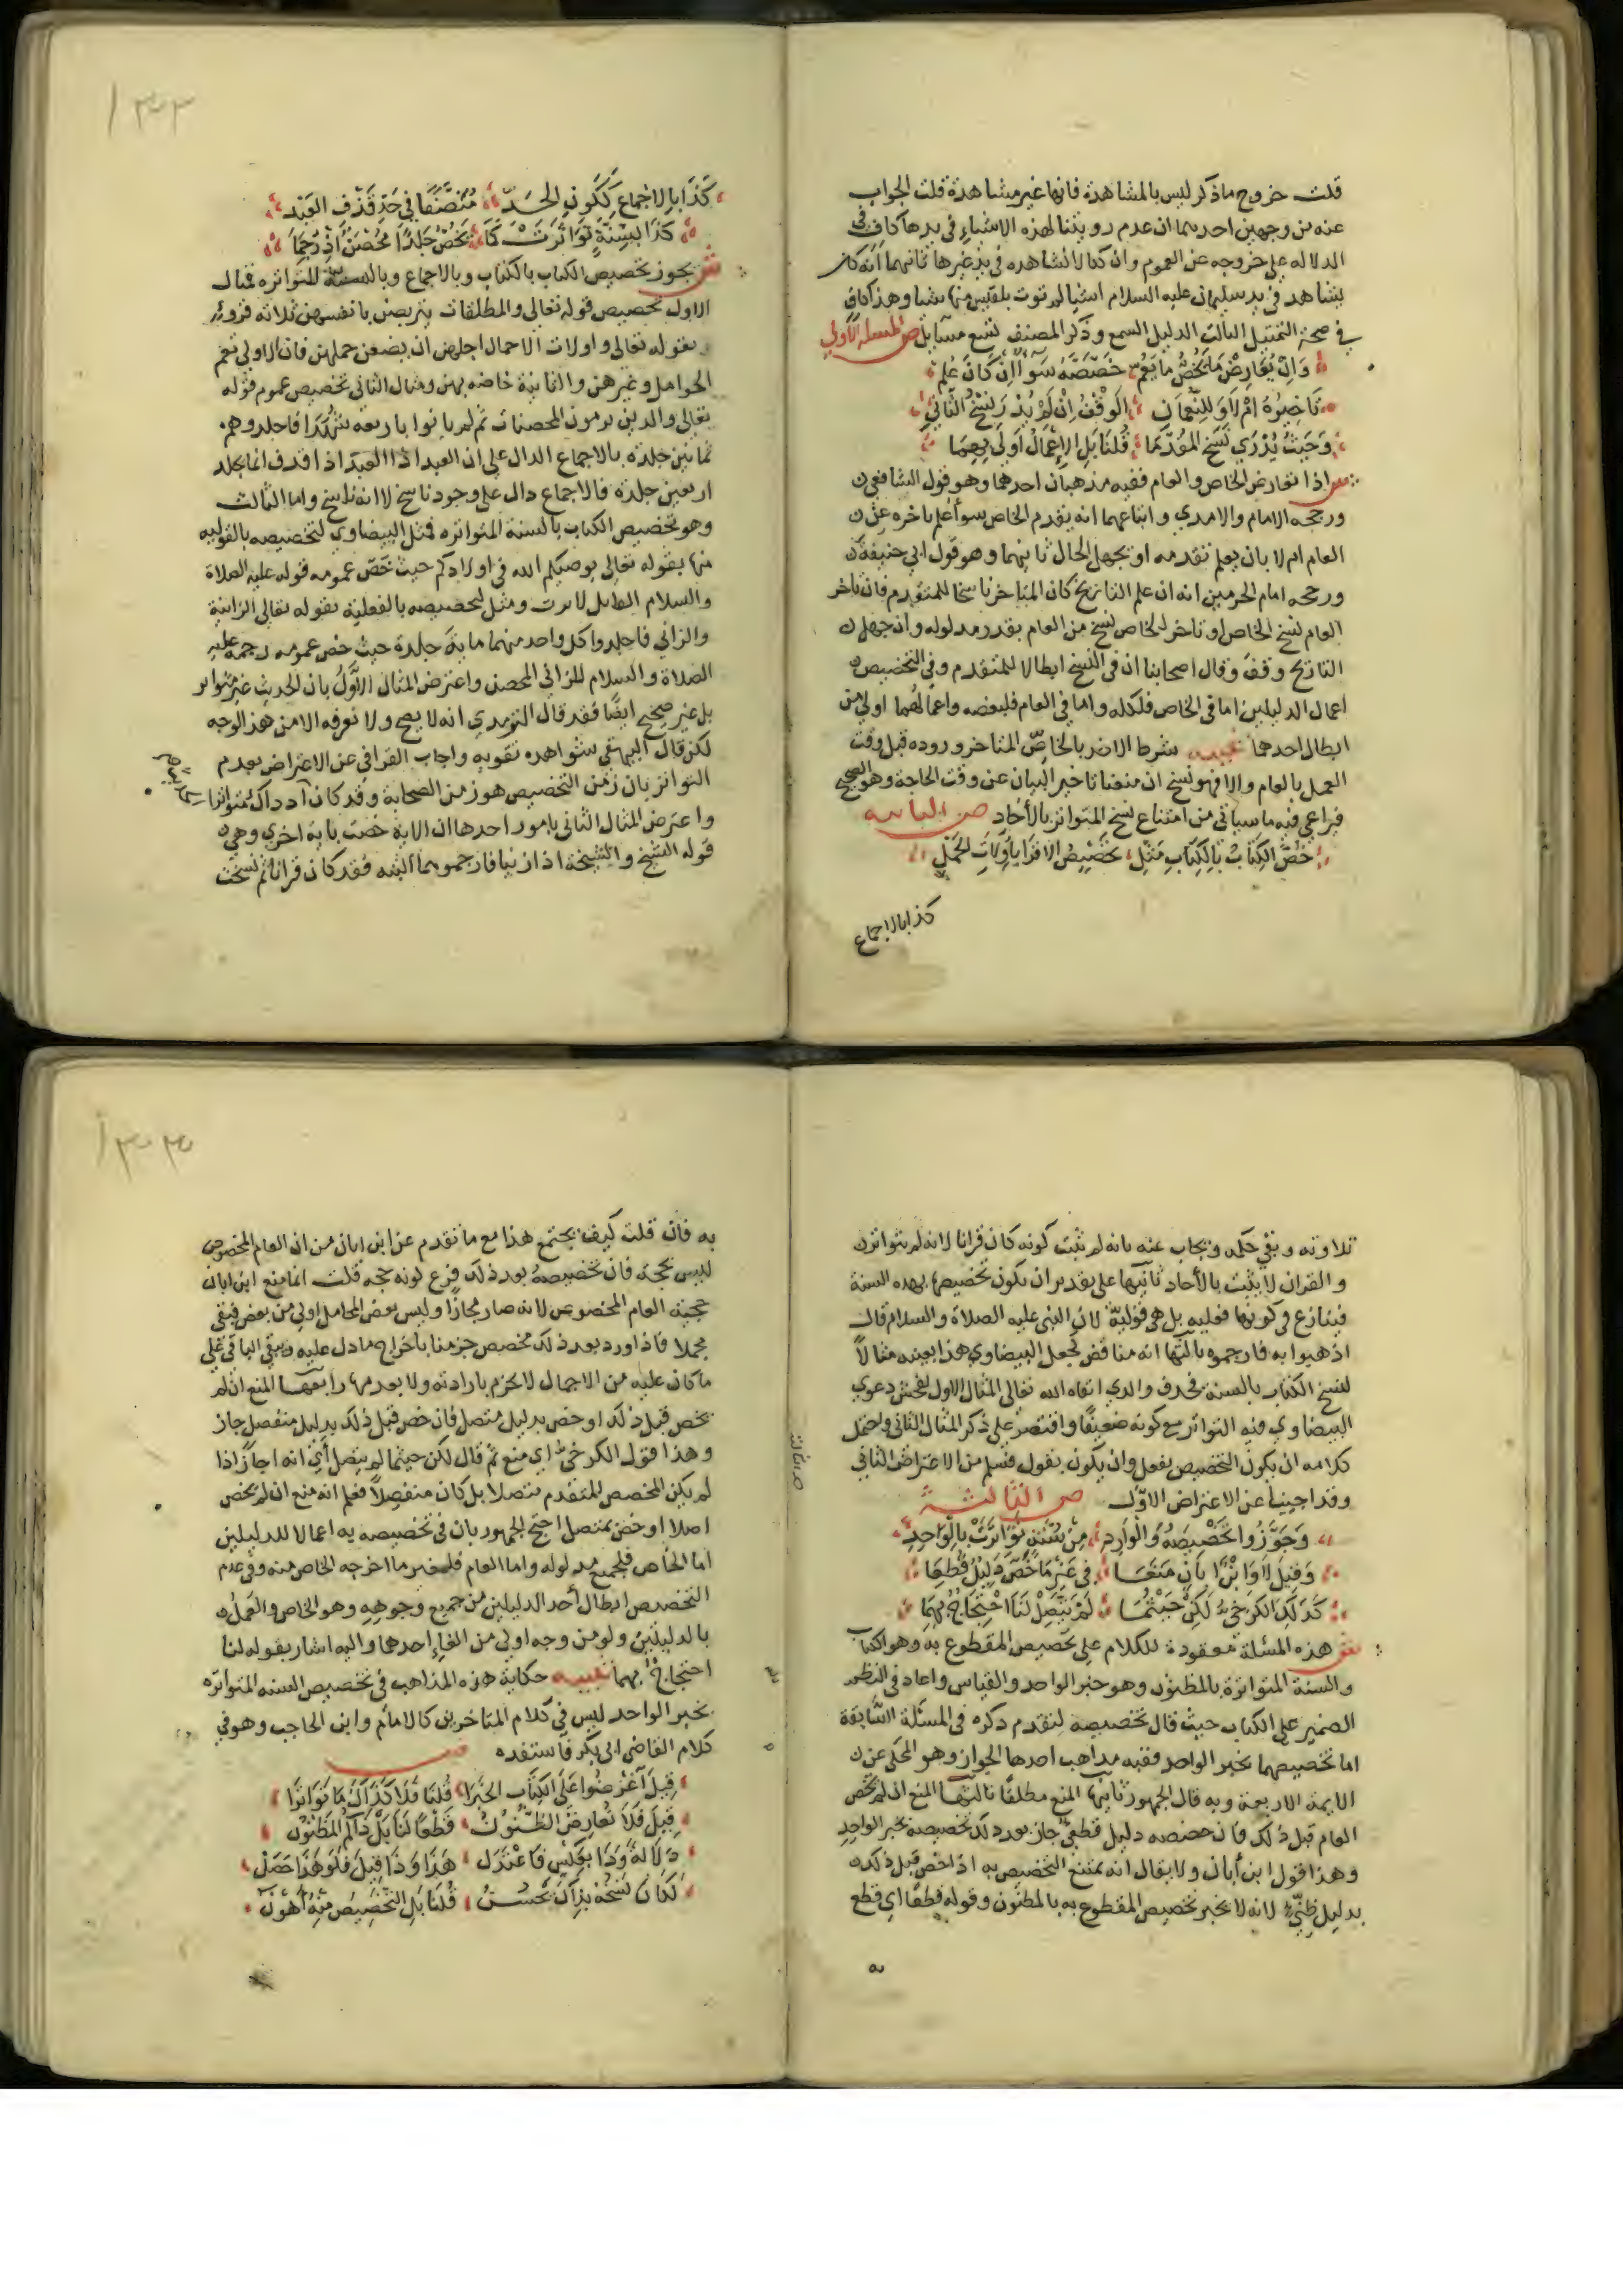 قلت خروج ماذكر ليس بالمشاهدة فانها غير مشاهدة قلت الجواب
عنه من وجهين احدهما ان عدم رويتنا لهذه الاشياء في يدها كاف في
الدلاله على خروجه عن العموم وان كنا لا نشاهده في يد غيرها ثانيهما انه كان
يشاهد في يد سليمان عليه السلام اشيا لم توت بلقيس منها شيا وهذا كاف
في صحة التمثيل الثالث الدليل السمع وذكر المصنف تسع مسايل ص المسئلة الاولي
وَاِنْ يُعَارِضْ مَا يَخُصُّ مَا يَعُمّ خَصَّصَهُ سَوَاً ان كَانَ عُلِمْ
تَاخِيرُهُ اَمْ لَا وَلِلنُّعْمَانِ الوَقْفُ اِنْ لَمْ يُدْرَ نَسْخُ الثَّانِي
وَحَيْثُ يُدْرَي نَسْخ المُقَدَّمَا قُلنَا بَلِ الاِعْمَالُ اَولَي بِهِمَا
ش اذا تعارض الخاص والعام ففيه مذهبان احدهما وهو قول الشافعي
ورجحه الامام والامدي واتباعهما انه يقدم الخاص سوا علم تاخره عن
العام ام لا بان يعلم تقدمه او يجهل الحال ثانيهما وهو قول ابي حنيفة
ورجحه امام الحرمين انه ان علم التاريخ كان المتاخر ناسخا للمتقدم فان تاخر
العام نسخ الخاص او تاخر الخاص نسخ من العام بقدر مدلوله وان جهل
التاريخ وقف وقال اصحابنا ان في النسخ ابطالا للمتقدم وفي التخصيص
اعمال الدليلين اما في الخاص فلكله واما في العام فلبعضه واعمالهما اولي من
ابطال احدهما تنبيه شرط الاخذ بالخاصّ المتاخر وروده قبل وقت
العمل بالعام والا فهو نسخ ان منعنا تاخير البيان عن وقت الحاجة وهو الصحيح
فيراعي فيه ما سياتي من امتناع نسخ المتواتر بالآحاد ص الثانيه
خُصَّ الكِتَابُ بِالكِتَابِ مَثِّلِ تَخْصِيصُ الاقرَا باُولَاتِ الحَمْلِ
كذا بالاجماع
١٣٢
كَذَا بِالاِجْمَاعِ كَكَونِ الحَدّ مُنَصَّفًا فِي حَدِّ قَذْفِ العَبْد
كَذَا بِسُنَّةٍ تَوَاتَرَتْ كَمَا يَخُصُّ جَلْدًا مُحْصَنٌ اِذْ رُجِمَا
ش يجوز تخصيص الكتاب بالكتاب وبالاجماع وبالسنة المتواتره فمثال
الاول تخصيص قوله تعالى والمطلقات يتربصن بانفسهن ثلاثة قروء
بقوله تعالى واولات الاحمال اجلهن ان يضعن حملهن فان الاولي تعم
الحوامل وغيرهن والثانية خاصه بهن ومثال الثاني تخصيص عموم قوله
تعالى والذين يرمون المحصنات ثم لم ياتوا باربعة شهدا فاجلدوهم
ثمانين جلدة بالاجماع الدال على ان العبد اذا العبد اذا قذف انما يجلد
اربعين جلدة فالاجماع دال على وجود ناسخ لا انه ناسخ واما الثالث
وهو تخصيص الكتاب بالسنة المتواتره فمثل البيضاوي لتخصيصه بالقوليه
منها بقوله تعالى يوصيكم الله في اولادكم حيث خصّ عمومه قوله عليه الصلاة
والسلام القاتل لا يرث ومثل لتخصيصه بالفعلية بقوله تعالى الزانية
والزاني فاجلدوا كل واحد منهما ماية جلدة حيث خص عمومه رجمه عليه
الصلاة والسلام للزاني المحصن واعترض المثال الاوَّلُ بان الحديث غير متواتر
بل غير صحيح ايضًا فقد قال الترمدي انه لا يصح ولا نعرفه الا من هذا الوجه
لكن قال البيهقي شواهده تقويه واجاب القرافي عن الاعتراض بعدم
التواتر بان زمن التخصيص هو زمن الصحابة وقد كان اذ ذاك متواترا
واعترض المثال الثاني بامور احدها ان الاية خصت باية اخري وهي
قوله الشيخ والشيخة اذا زنيا فارجموهما البته فقد كان قرانا ثم نسخت
تلاوته وبقي حكمه ويجاب عنه بانه لم يثبت كونه كان قرانا لانه لم يتواتر
والقران لا يثبت بالآحاد ثانيها على تقدير ان يكون تخصيصها بهذه السنة
فينازع في كونها فعليه بل هي قوليّة لان النبي عليه الصلاة والسلام قال
اذهبوا به فارجموه ثالثها انه مناقض لجعل البيضاوي هذا بعينه مثالاً
لنسخ الكتاب بالسنة فحذف والدي ابقاه الله تعالى المثال الاول لفحش دعوي
البيضاوي فيه التواتر مع كونه ضعيفًا واقتصر على ذكر المثال الثاني ويحتمل
كلامه ان يكون التخصيص بفعل وان يكون بقول فسلم من الاعتراض الثاني
وقد اجيبنا عن الاعتراض الاوّل ص الثالثة
وَجَوَّزُوا تَخْصِيصَهُ وَالوَارِدِ مِنْ سُنَنٍ تَوَاتَرَتْ بِالوَاحِدِ
وَقِيلَ لَا وَابْنُ اَبَانَ مَنَعَا فِي غَيْرِ مَا خَصَّ دَلِيلٌ قُطِعَا
كَذَلِكَ الكَرخِيُّ لَكِنْ حَيْثُمَا لَمْ يَتَّصِلْ لَنَا احْتِجَاجٌ بِهِمَا
ش هذه المسئلة معقودة للكلام على تخصيص المقطوع به وهو الكتاب
والسنة المتواترة بالمظنون وهو خبر الواحد والقياس واعاد في النظم
الضمير على الكتاب حيث قال تخصيصه لتقدم ذكره في المسئلة السَّابقة
اما تخصيصهما بخبر الواحد ففيه مذاهب احدها الجواز وهو المحكي عن
الايمة الاربعة وبه قال الجمهور ثانيها المنع مطلقًا ثالثها المنع ان لم يخص
العام قبل ذلك فان خصصه دليل قطعيّ جاز بعد ذلك تخصيصه بخبر الواحدِ
وهذا قول ابن أبان ولا يقال انه يمتنع التخصيص به اذا خص قبل ذلك
بدليل ظنّيّ لانه لا يخبر تخصيص المقطوع به بالمظنون وقوله قطعًا اي قطع
به
١٣٣
به فان قلت كيف يجتمع هذا مع ما تقدم عن ابن ابان من ان العام المخصوص
ليس بحجة فان تخصيصهُ بعد ذلك فرع كونه حجه قلت انما منع ابن ابان
حجية العام المخصوص لانه صار مجازًا وليس بعض المحامل اولي من بعض فيبقى
مجملا فاذا ورد بعد ذلك مخصص جزمنا باخراج ما دل عليه وبقي الباقي على
ما كان عليه من الاجمال لا نجزم بارادته ولا بعدمها رابعها المنع ان لم
يخص قبل ذلك او خص بدليل متصل فان خص قبل ذلك بدليل منفصل جاز
وهذا قول الكرخي اي منع ثم قال لكن حيثما لم يتصل أي انه اجاز اذا
لم يكن المخصص المتقدم متصلا بل كان منفصِلًا فعلم انه منع ان لم يخص
اصلا او خص بمتصل احتج الجمهور بان في تخصيصه به اعمالا للدليلين
اما الخاص فلجميع مدلوله واما العام فلغير ما اخرجه الخاص منه وفي عدم
التخصيص ابطال أحد الدليلين من جميع وجوهِهِ وهو الخاص والعمل
بالدليلين ولو من وجه اولي من الغاء احدهما واليه اشار بقوله لنا
احتجاج بهما تنبيه حكاية هذه المذاهب في تخصيص السنه المتواتره
بخبر الواحد ليس في كلام المتاخرين كالامام وابن الحاجب وهو في
كلام القاضي ابي بكر فاستفده ص
قِيلَ اعْرِضُوا عَلَى الكِتَاب الخَبَرَا قُلنَا فَلَا كَذَاكَ مَا تَوَاتَرَا
قِيلَ فَلَا تُعَارِضُ الظُّنُونُ قَطْعًا لَنَا بَلْ ذَاكُم المَظنُونُ
دَلَالَةً وَذَا بِعَكْسٍ فَاعْتَدَل هَذَا وَذَا قِيلَ فَلَو هَذَا حَصَلْ
لَكَانَ نَسْخُهُ بِذَاكَ يَحْسُنُ قُلنَا بَلِ التَّخْصِيصُ مِنْهُ أَهْوَن